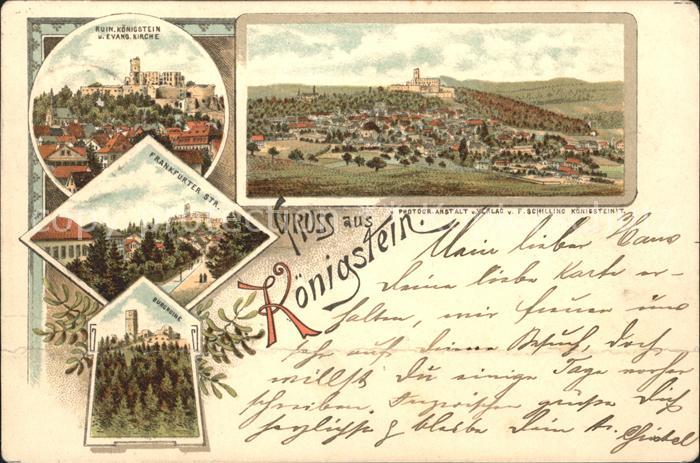 RUIN. KÖNIGSTEIN
u. EVANG. KIRCHE
FRANKFURTER STR.
BURGRUINE
PHOTOGR. ANSTALT u. VERLAG v. F. SCHILLING KÖNIGSTEIN i/T.
GRUSS aus
Königstein.
Mein lieber Hans
Deine liebe Karte er-
halten, wir freuen uns
sehr auf Deinen Besuch, doch
willst Du einige Tage vorher
schreiben. Inzwischen grüße Dich
herzlichst & bleibe Dein